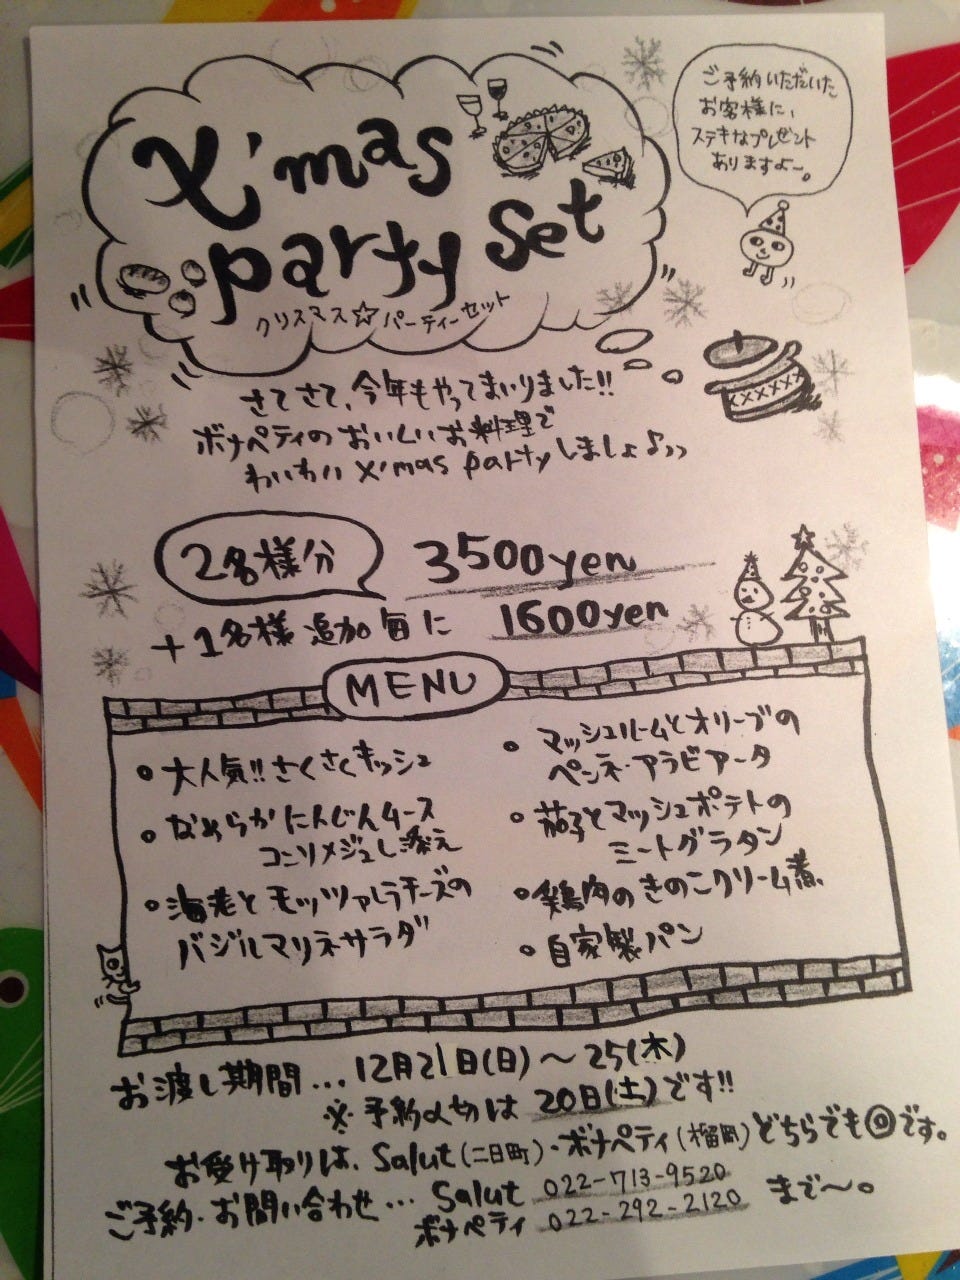 X'mas
party set
クリスマス☆パーティーセット
ご予約いただいた
お客様に、
ステキなプレゼント
ありますよ〜。
さてさて、今年もやってまいりました!!
ボナペティのおいしいお料理で
わいわい X'mas partyしましょ♪♪
2名様分 3500yen
+1名様追加毎に 1600yen
MENU
• 大人気!!さくさくキッシュ
• なめらかにんじんムース
コンソメジュレ添え
• 海老とモッツァレラチーズの
バジルマリネサラダ
• マッシュルームとオリーブの
ペンネ・アラビアータ
• 茄子とマッシュポテトの
ミートグラタン
• 鶏肉のきのこクリーム煮
• 自家製パン
お渡し期間…12月21日(日)〜25(木)
※予約〆切は 20日(土)です!!
お受け取りは、Salut(二日町)・ボナペティ(榴岡)どちらでも◎です。
ご予約・お問い合わせ… Salut 022-713-9520
ボナペティ 022-292-2120 まで〜。